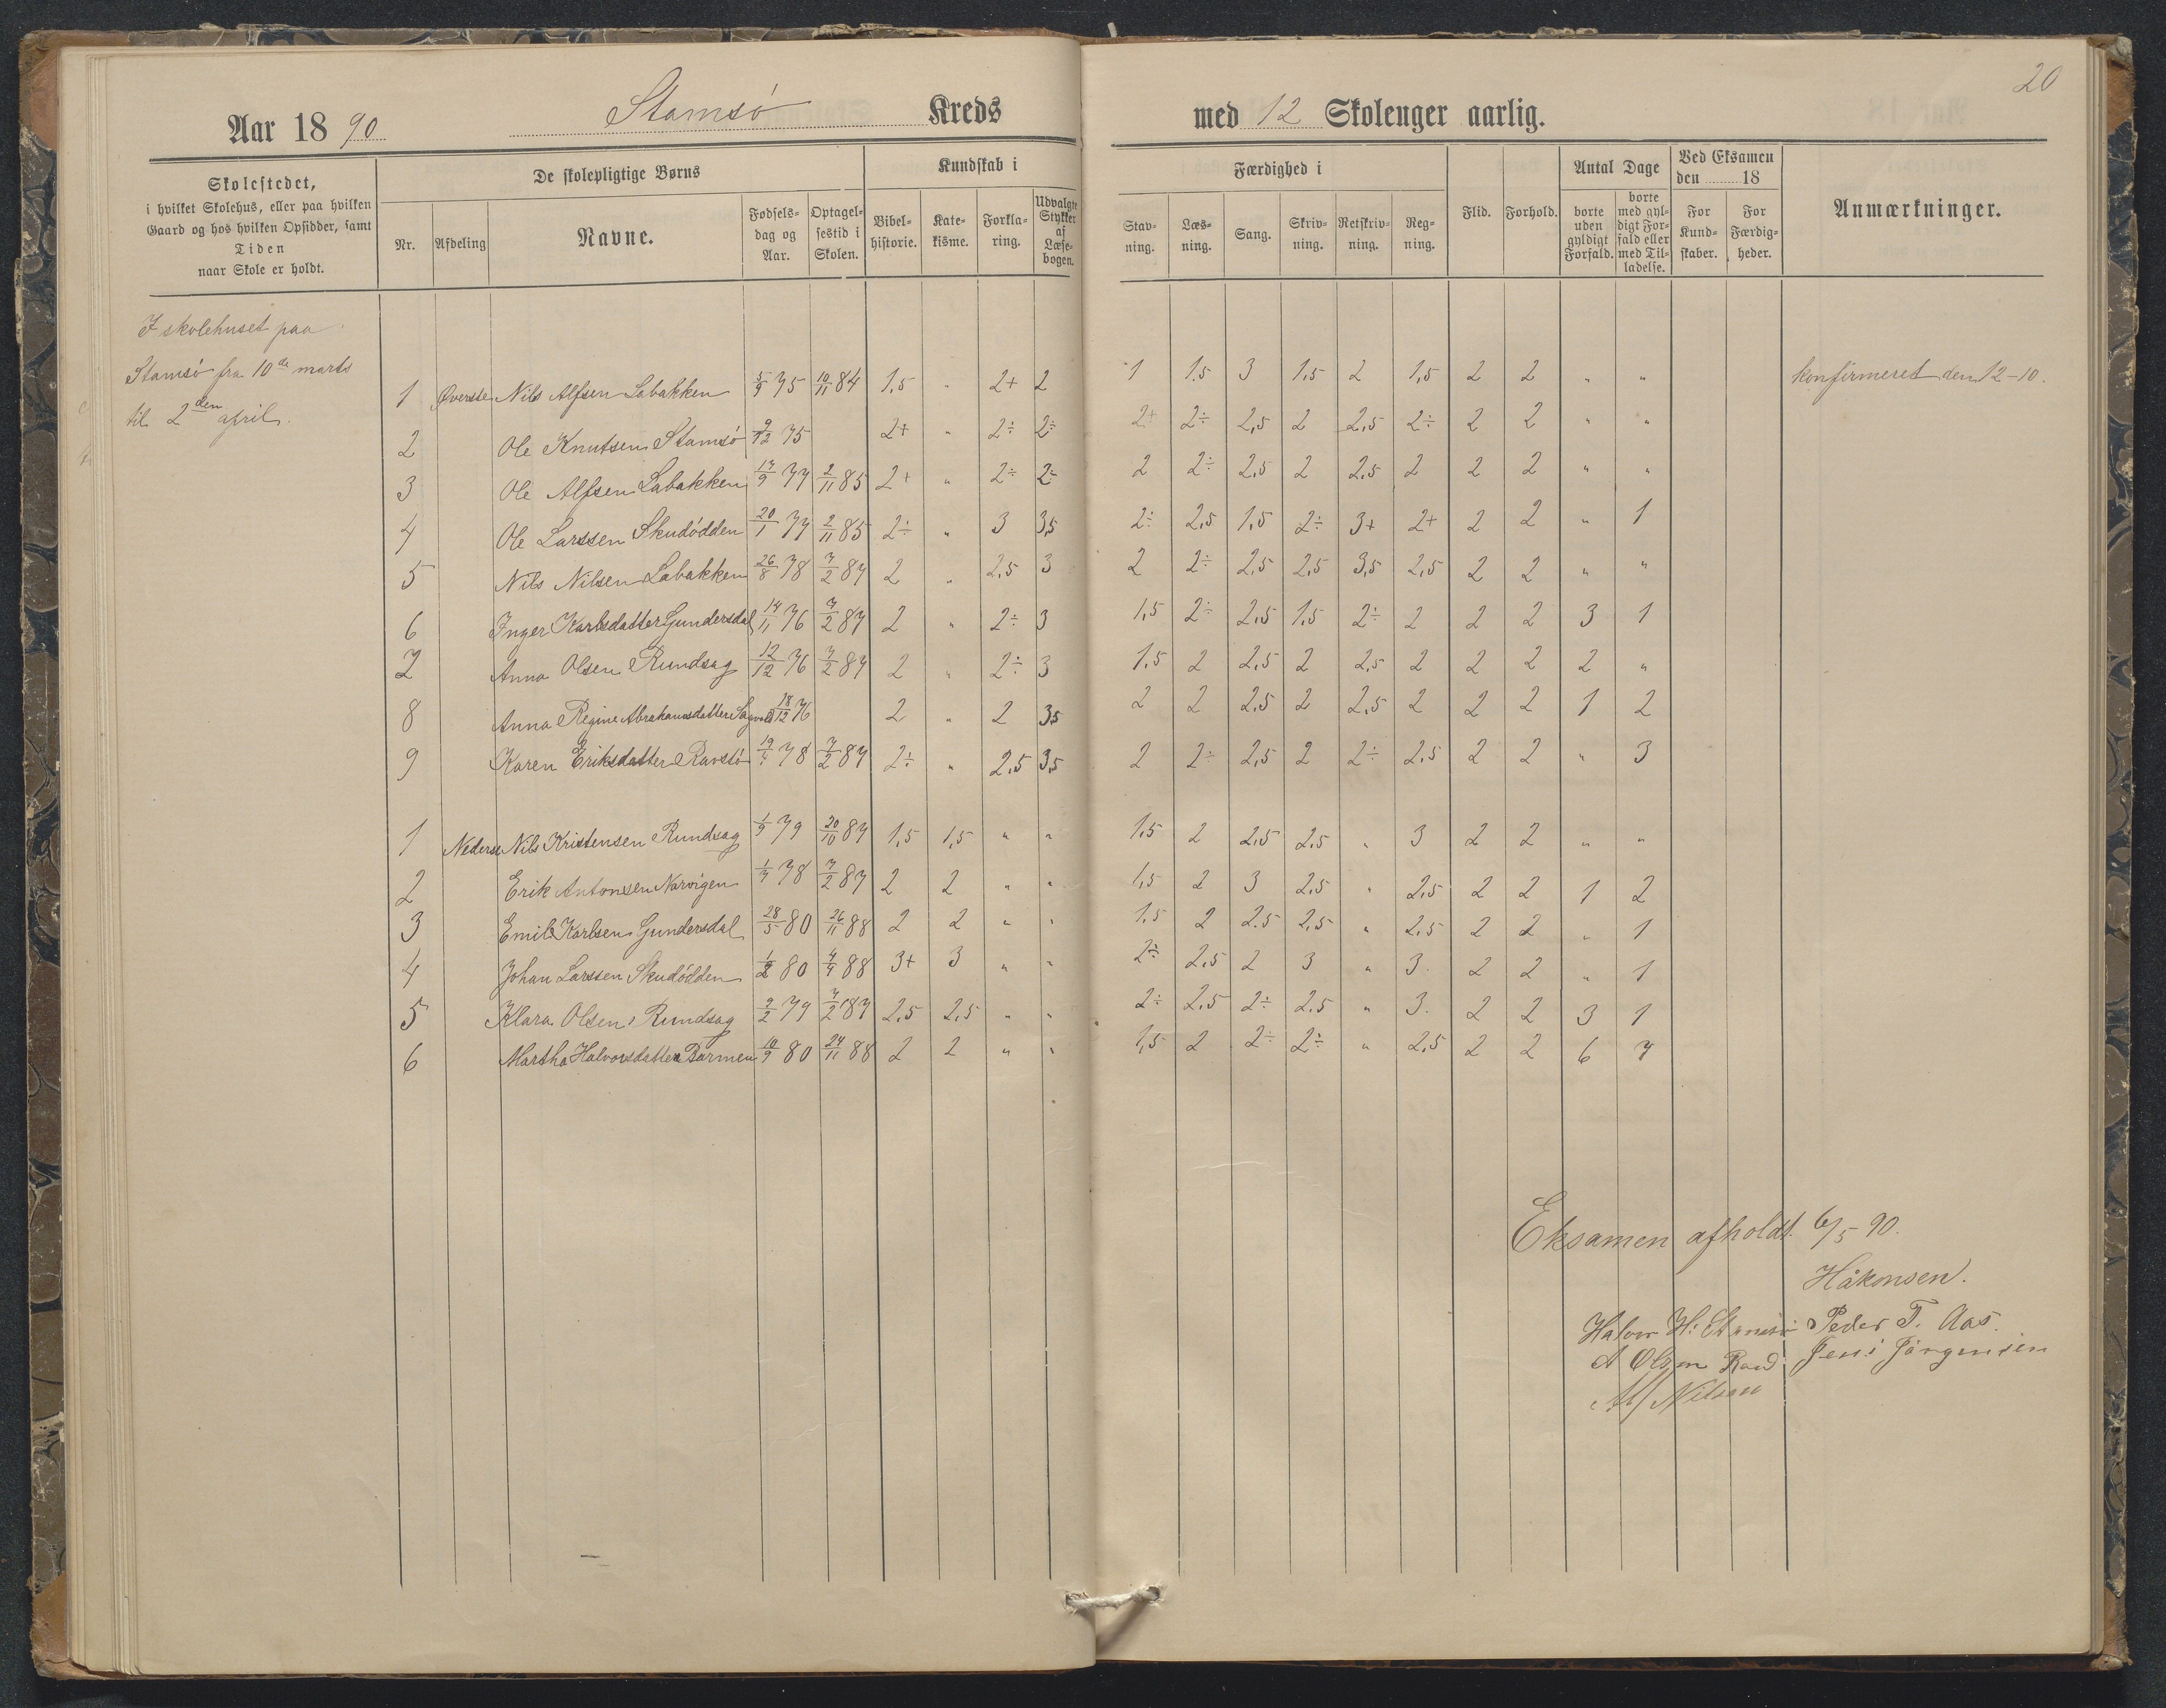 20
Aar 1890 Stamsö Kreds med 12 Skolenger aarlig.
Skolestedet, i hvilket Skolehus, eller paa hvilken Gaard og hos hvilken Opsidder, samt Tiden naar Skole er holdt.
De skolepligtige Børns
Nr. Afdeling Navne. Fødselsdag og Aar. Optagelsestid i Skolen.
Kundskab i
Bibelhistorie. Katekisme. Forklaring. Udvalgte Stykker af Læsebogen.
Færdighed i
Stavning. Læsning. Sang. Skrivning. Retskrivning. Regning.
Flid. Forhold.
Antal Dage
borte uden gyldigt Forfald. borte med gyldigt Forfald eller med Tilladelse.
Ved Eksamen den 18
For Kundskaber. For Færdigheder.
Anmærkninger.
I skolehuset paa
Stamsö fra 10de marts
til 2den april.
1 Øverste Nils Alfsen Labakken 5/9 75 10/11 84 1,5 " 2+ 2 1 1.5 3 1,5 2 1,5 2 2 " " konfirmeret den 12-10.
2 Ole Knutsen Stamsö 9/12 75 2+ " 2÷ 2÷ 2+ 2÷ 2,5 2 2,5 2÷ 2 2 " "
3 Ole Alfsen Labakken 17/9 77 2/11 85 2+ " 2÷ 2÷ 2 2÷ 2,5 2 2,5 2 2 2 " "
4 Ole Larssen Skudödden 20/1 77 2/11 85 2÷ " 3 3,5 2÷ 2,5 1,5 2÷ 3+ 2+ 2 2 " 1
5 Nils Nilsen Labakken 26/8 78 7/2 87 2 " 2,5 3 2 2÷ 2,5 2,5 3,5 2,5 2 2 " "
6 Inger Karlsdatter Gundersdal 14/11 76 7/2 87 2 " 2÷ 3 1,5 2÷ 2,5 1,5 2÷ 2 2 2 3 1
7 Anna Olsen Rundsag 12/12 76 7/2 87 2 " 2÷ 3 1,5 2 2,5 2 2,5 2 2 2 2 "
8 Anna Regine Abrahamsdatter Sagvold 18/12 76 2 " 2 3,5 2 2 2,5 2 2,5 2 2 2 1 2
9 Karen Eriksdatter Ravstö 19/7 78 7/2 87 2÷ " 2,5 3,5 2 2÷ 2,5 2 2÷ 2,5 2 2 " 3
1 Nederste Nils Kristensen Rundsag 1/9 79 20/10 87 1,5 1,5 " " 1,5 2 2,5 2,5 " 3 2 2 " "
2 Erik Antonsen Narvigen 1/7 78 7/2 87 2 2 " " 1,5 2 3 2,5 " 2,5 2 2 1 2
3 Emil Karlsen Gundersdal 28/5 80 26/11 88 2 2 " " 1,5 2 2.5 2,5 " 2,5 2 2 " 1
4 Johan Larssen Skudödden 1/2 80 4/4 88 3+ 3 " " 2÷ 2,5 2 3 " 3. 2 2 " 1
5 Klara Olsen Rundsag 2/2 79 7/2 87 2,5 2,5 " " 2÷ 2,5 2÷ 2,5 " 3. 2 2 3 1
6 Martha Halvorsdatter 10/9 80 24/11 88 2 2 " " 1,5 2 2÷ 2÷ " 2,5 2 2 6 7
Eksamen afholdt 6/5 90.
Håkonsen.
Halvor H. Stamsö Peder T. Aas.
A Olsen Jens Jörgensen
Alf Nilsen